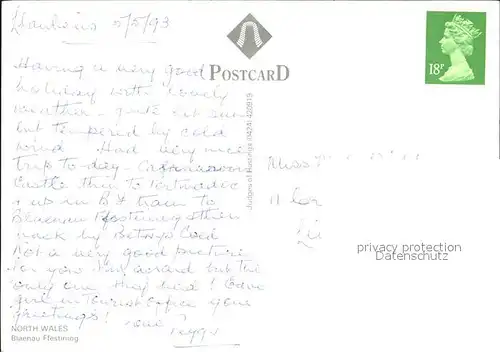 5/5/93
POSTCARD
18P
Having a very good
holiday with lovely
weather - quite hot sun
but tempered by cold
wind. Had very nice
trip to-day - Caernarvon
Castle then to Portmadoc
& up in B & train to
Blaenau Ffestiniog then
back by Betws y Coed
Not a very good picture
for you I'm afraid but the
only one they had! Gave
girl in Tourist Office your
greetings! Love
Judges of Hastings (0424) 420919
Miss
11
privacy protection
Datenschutz
NORTH WALES
Blaenau Ffestiniog